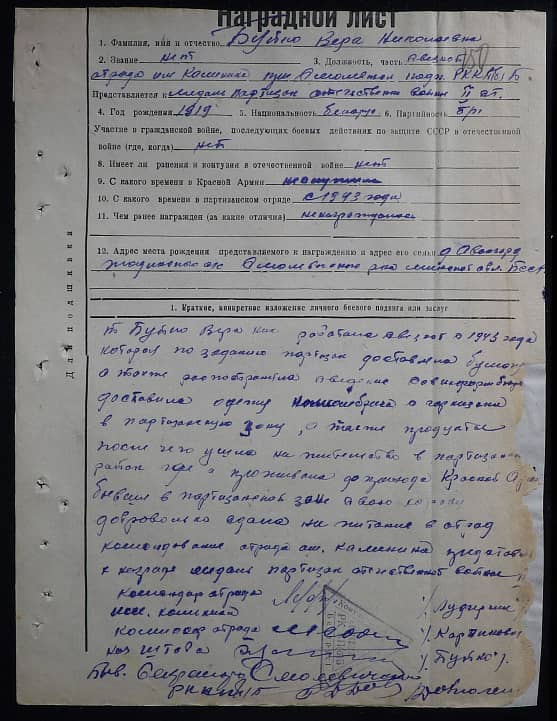 Наградной лист
1. Фамилия, имя и отчество Бутко Вера Николаевна
2. Звание нет 3. Должность, часть Связной
отряда им Калинина при Смолевич подп. РККП(б)Б
Представляется к медали партизан отечественной войны II ст.
4. Год рождения 1919 5. Национальность белорус 6. Партийность б/п
Участие в гражданской войне, последующих боевых действиях по защите СССР и отечественной
войне (где, когда) нет
8. Имеет ли ранения и контузии в отечественной войне нет
9. С какого времени в Красной Армии
10. С какого времени в партизанском отряде с 1943 года
11. Чем ранее награжден (за какие отличия) ненаграждалась
12. Адрес места рождения представляемого к награждению и адрес его семьи д.
Смолевичского р-на минской обл. БССР
Для подшивки
1. Краткое, конкретное изложение личного боевого подвига или заслуг
т Бутко Вера Ник работала связной с 1943 года
которая по заданию партизан доставляла бумагу
а также распространяла сведения Совинформбюро
доставила одежду врача с гарнизона
в партизанскую зону, а также продукты
после чего ушла на жительство в партизанский
район где и проживала до прихода Красной
бывши в партизанской зоне свою корову
добровольно сдала на питание в отряд
командование отряда им. Калинина представляет
к награде медали партизан отечественной войны II
Командир отряда
им. Калинина
Комиссар отряда
нач штаба /Бутко/.
Секретаря Смолевичского
РККП(б)Б